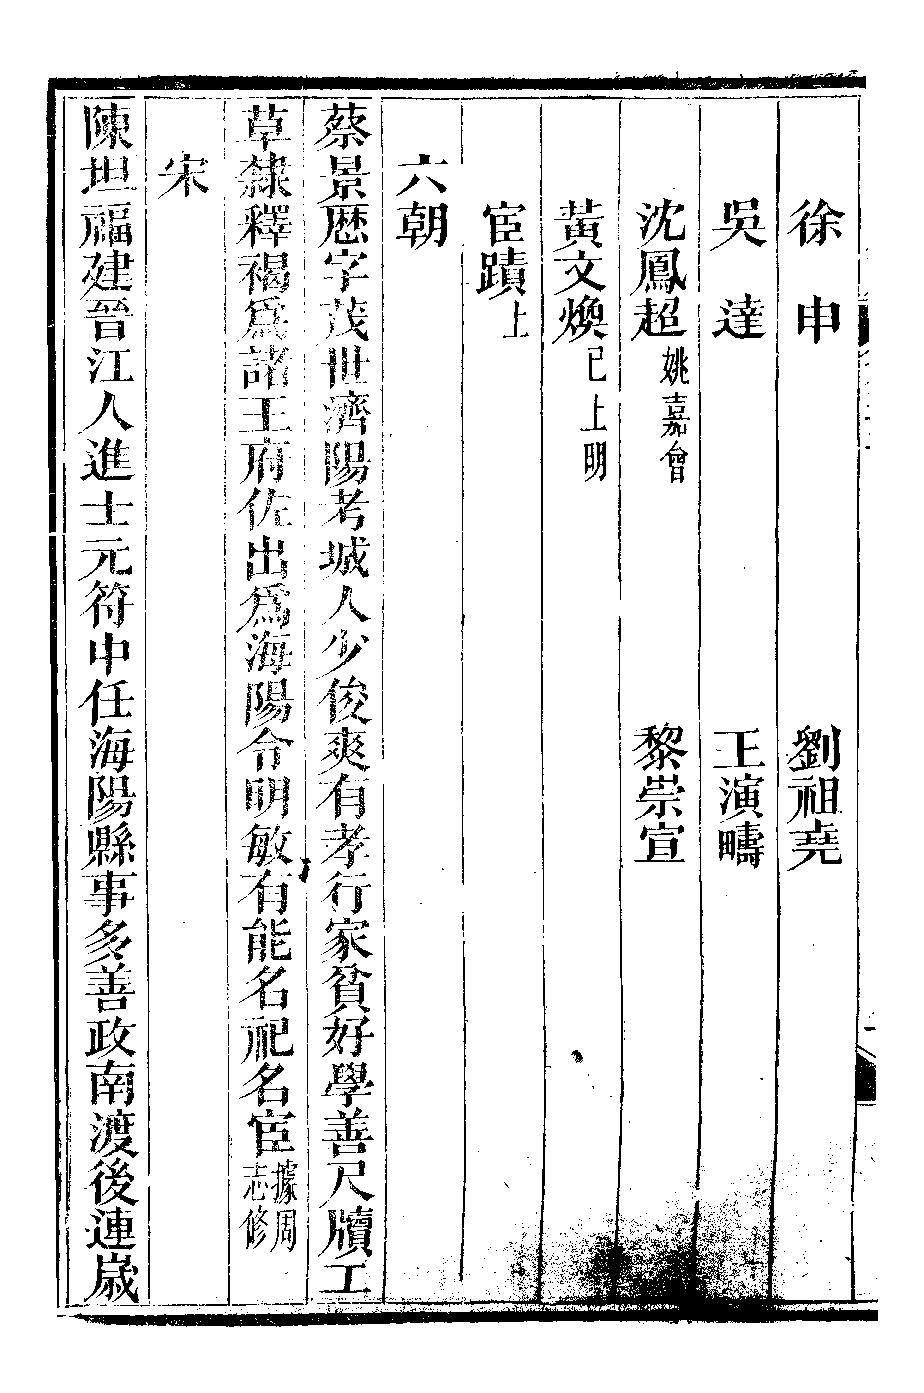 徐申　劉祖堯
吳達　王演疇
沈鳳超姚嘉會　黎崇宣
黃文煥已上明
宦蹟上
六朝
蔡景歷字茂世濟陽考城人少俊爽有孝行家貧好學善尺牘工
草隸釋褐爲諸王府佐出爲海陽令明敏有能名祀名宦據周志修
宋
陳坦福建晉江人進士元符中任海陽縣事多善政南渡後連歲